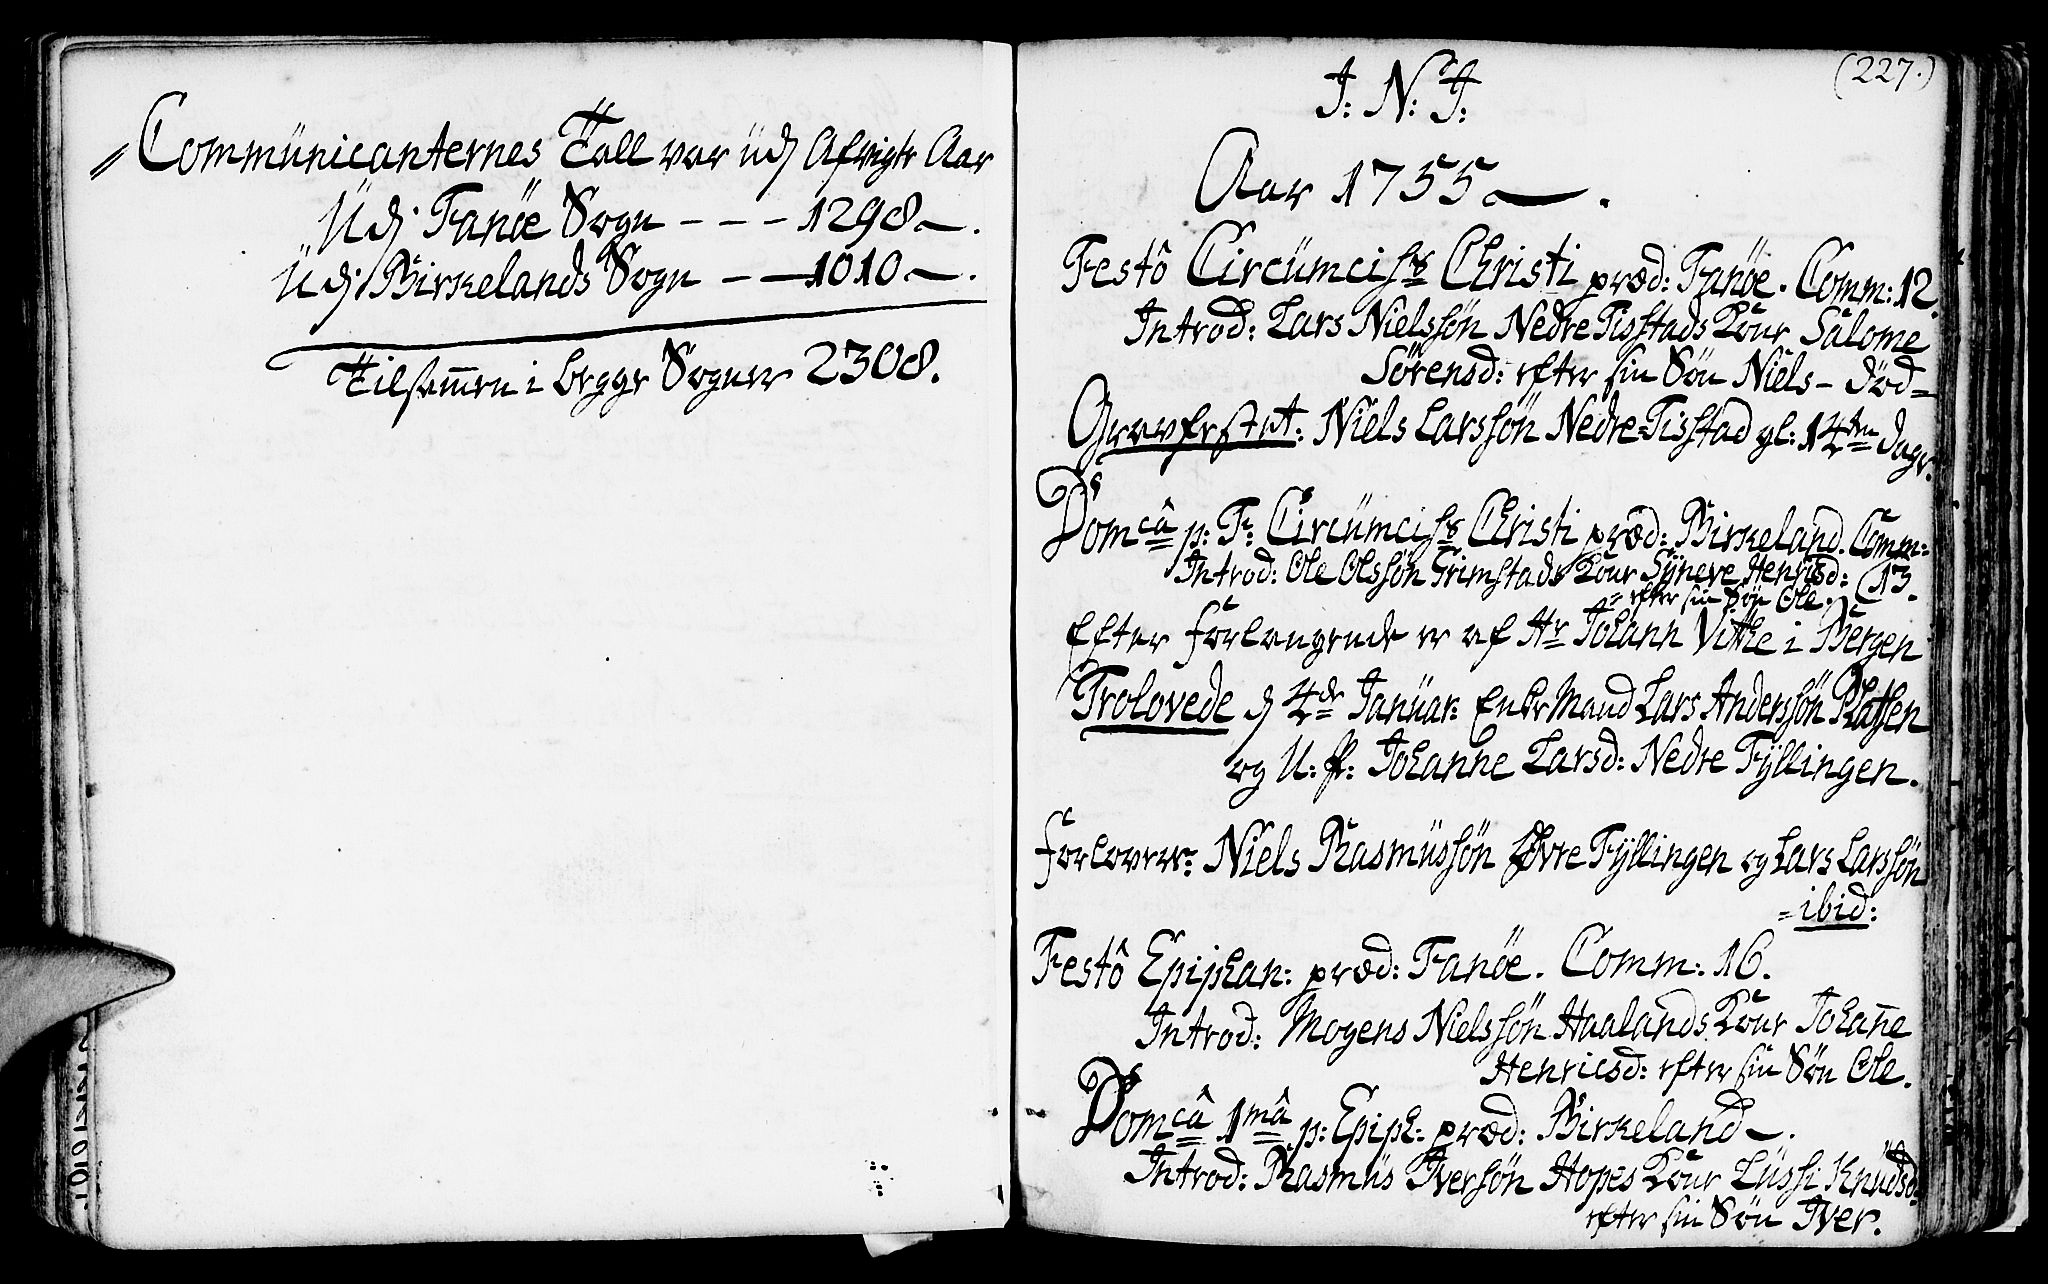 Commünicanternes Tall var üdj Afvigte Aar
Üdj Fanöe Sogn - - - 1298.
Üdj Birkelands Sogn - - 1010.
Tilsam̄en i begge Sogner 2308.
(227.)
J: N: J:
Aar 1755.
Festô Circümcis: Christi præd: Fanöe. Comm: 12.
Introd: Lars Nielssön Nedre Tisstads Kour Salome
Sörensd: efter sin Sön Niels - död -
Gravfestet: Niels Larssön Nedre-Tisstad gl: 14ten dage.
Domcâ p: F: Circümcis: Christi præd: Birkeland. Comm:
Introd: Ole Olssön Grimstads Kour Syneve Henricsd: (13.
= efter sin Sön Ole.
Efter forlangende er af Hr Johann Vithe i Bergen
Trolovede dj 4de Janüar: Enke Mand Lars Anderssön
og U: P: Johanne Larsd: Nedre Fyllingen.
forlover: Niels Rasmüssön Övre Fyllingen og Lars Larssön
= ibid:
Festô Epiphan: præd: Fanöe. Comm: 16.
Introd: Mogens Nielssön Haalands Kour Johan̄e
Henricsd: efter sin Sön Ole.
Domcâ 1mâ p: Epiph: præd: Birkeland.
Introd: Rasmüs Iversön Hopes Kour Lüssi Knüdsd:
efter sin Sön Iver.